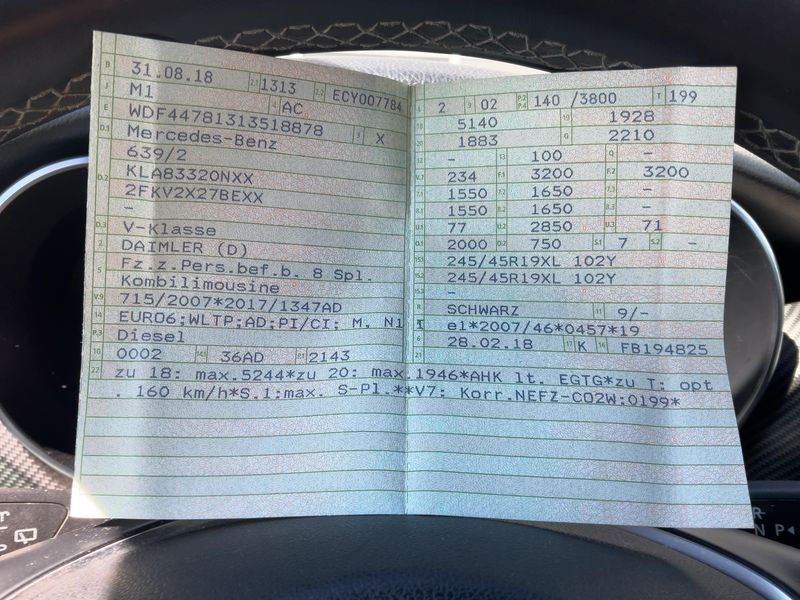 B 31.08.18 2.1 1313 2.2 ECY007784
J M1 4 AC
E WDF44781313518878 3 X
D.1 Mercedes-Benz
639/2
D.2 KLAB3320NXX
2FKV2X27BEXX
-
D.3 V-Klasse
2 DAIMLER (D)
5 Fz.z.Pers.bef.b. 8 Spl.
Kombilimousine
V.9 715/2007*2017/1347AD
14 EURO6;WLTP;AD;PI/CI; M, N1 I
P.3 Diesel
10 0002 14.1 36AD P.1 2143
L 2 9 02 P.2 P.4 140 /3800 T 199
18 5140 19 1928
20 1883 G 2210
12 - 13 100 Q -
V.7 234 F.1 3200 F.2 3200
7.1 1550 7.2 1650 7.3 -
8.1 1550 8.2 1650 8.3 -
U.1 77 U.2 2850 U.3 71
O.1 2000 O.2 750 S.1 7 S.2 -
15.1 245/45R19XL 102Y
15.2 245/45R19XL 102Y
15.3 -
R SCHWARZ 11 9/-
K e1*2007/46*0457*19
6 28.02.18 17 K 16 FB194825
21
22 zu 18: max.5244*zu 20: max.1946*AHK lt. EGTG*zu T: opt
. 160 km/h*S.1:max. S-Pl.**V7: Korr.NEFZ-CO2W:0199*